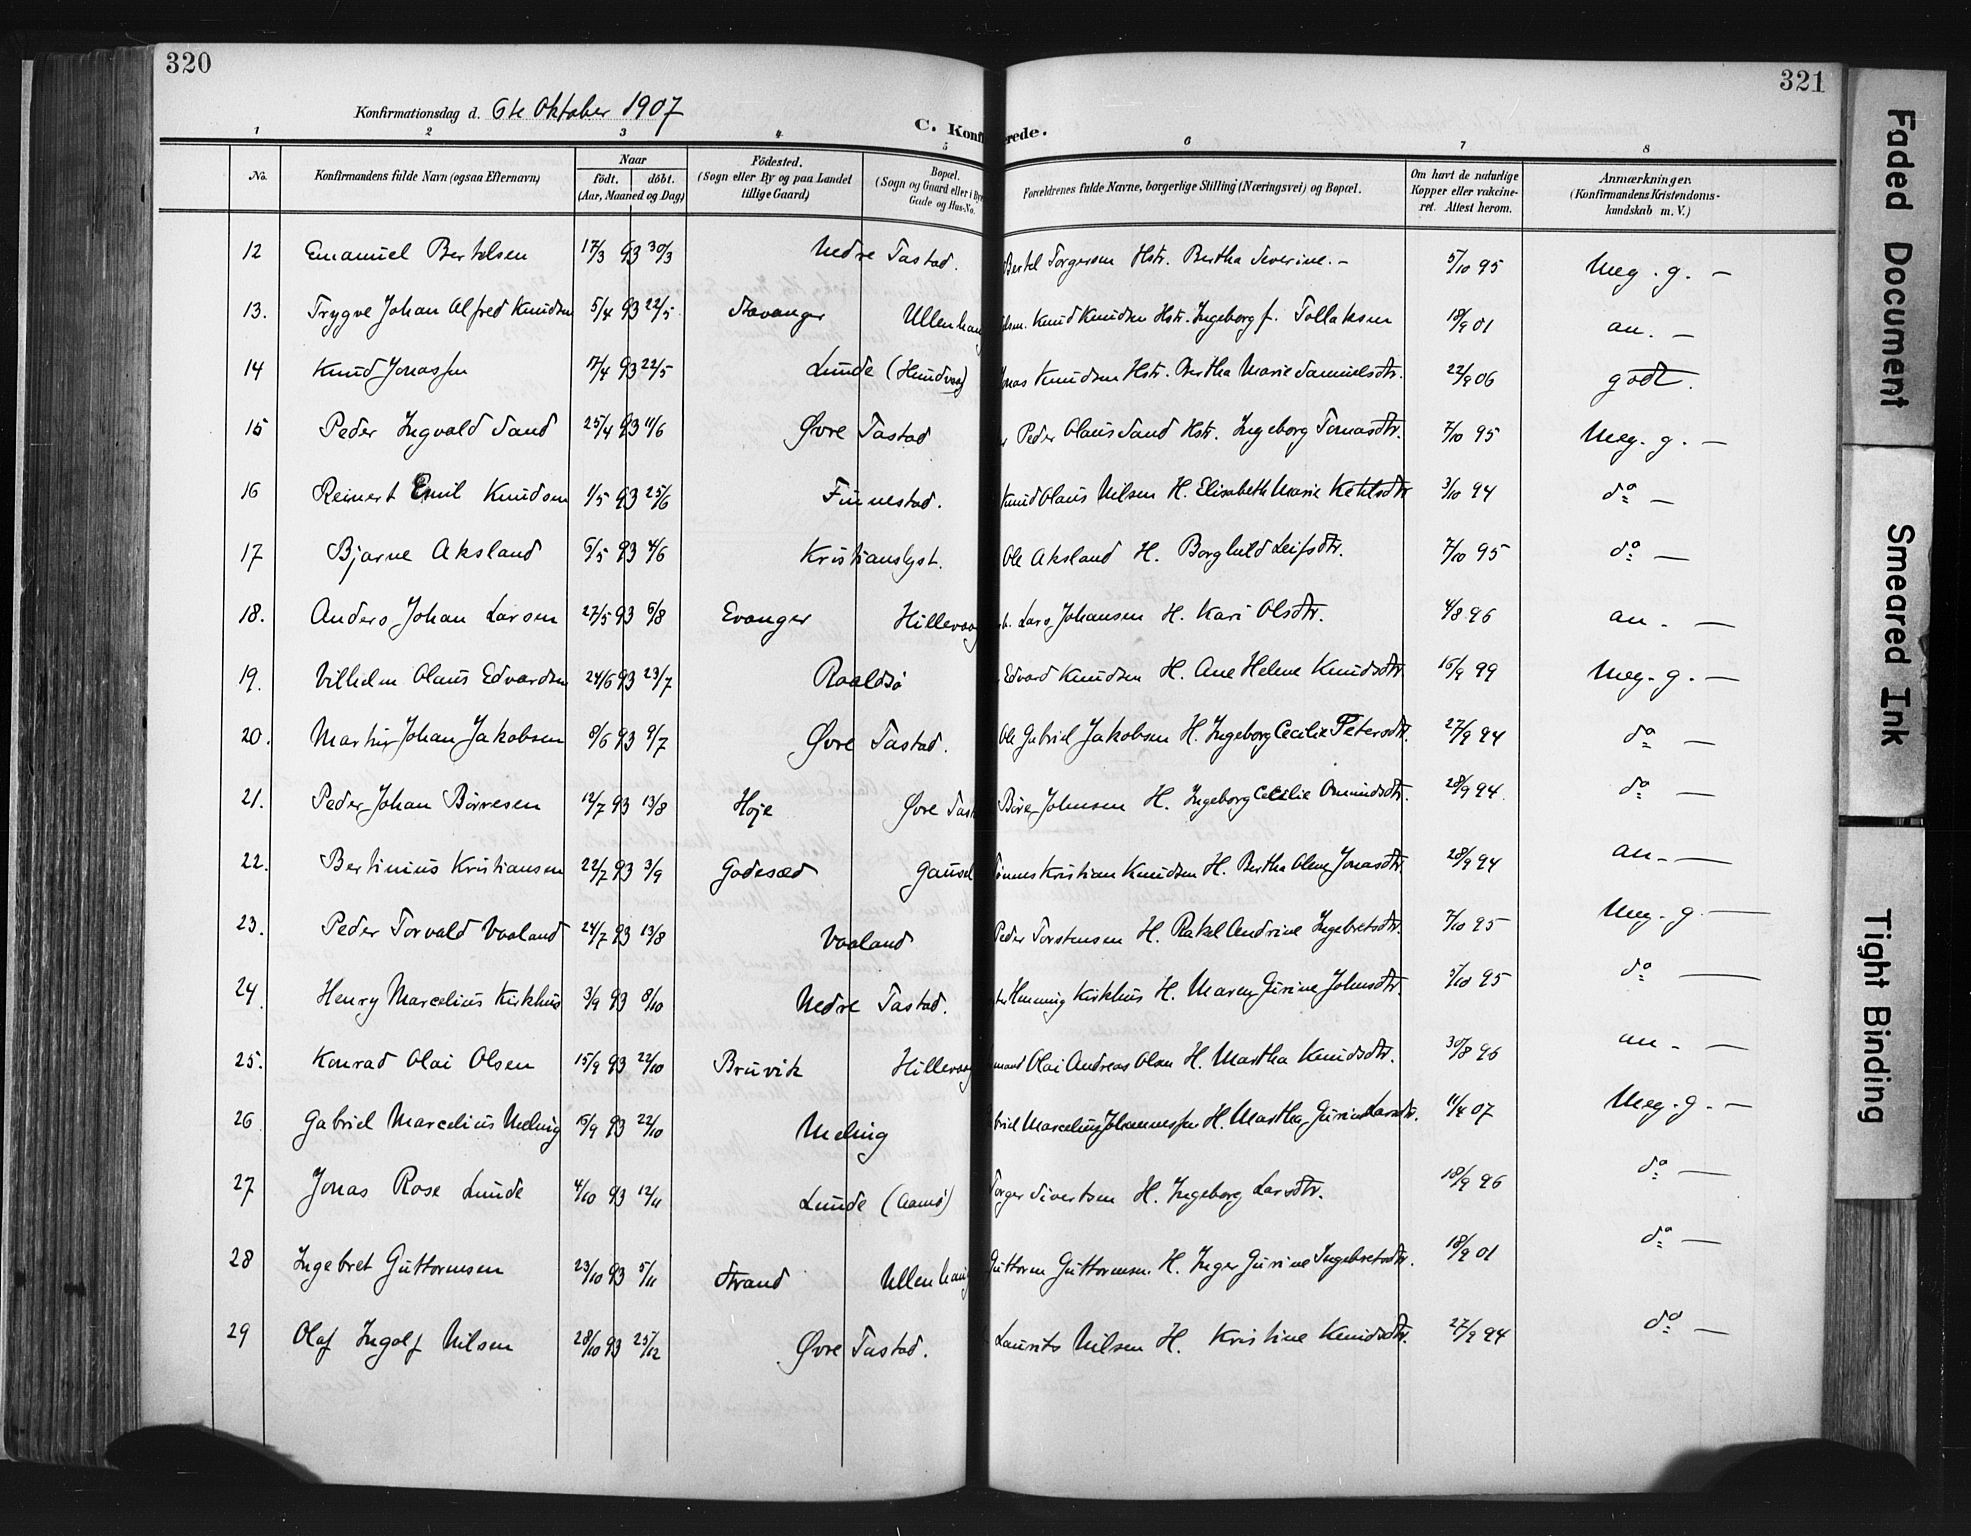 320
321
Konfirmationsdag d. 6te Oktober 1907
C. Konfi rerede.
1 2 3 4 5 6 7 8
No. Konfirmandens fulde Navn (ogsaa Efternavn) Naar Födt. döbt. (Aar, Maaned og Dag) Födested. (Sogn eller By og paa Landet tillige Gaard) Bopæl. (Sogn og Gaard eller i By Gade og Hus-No. Forældrenes fulde Navne, borgerlige Stilling (Næringsvei) og Bopæl. Om havt de naturlige Kopper eller vakcineret. Attest herom. Anmærkninger. (Konfirmandens Kristendomskundskab m. V.)
12 Emanuel Bertelsen 17/3 93 30/3 Nedre Tastad. Bertel Torgersen Hstr. Bertha Severine. – 5/10 95 Meg. g. –
13. Trygve Johan Alfred Knudsen 5/4 93 22/5 Stavanger Ullenhaug Knud Knudsen Hstr. Ingeborg f. Tollaksen 18/9 01 an. –
14 Knud Jonassen 17/4 93 22/5 Lunde (Hundvaag) Jonas Knudsen Hstr. Bertha Marie Samuelsdtr. 22/9 06 godt.
15 Peder Ingvald Sand 25/4 93 11/6 Øvre Tastad Peder Olaus Sand Hstr. Ingeborg Tomasdtr. 7/10 95 Meg. g. –
16 Reinert Emil Knudsen 1/5 93 25/6 Finnestad. Knud Olaus Nilsen H. Elisabeth Marie Ketilsdtr 3/10 94 do –
17 Bjarne Aksland 6/5 93 4/6 Kristianslyst. Ole Aksland H. Borghild Leifsdtr. 7/10 95 do –
18. Anders Johan Larsen 27/5 93 6/8 Evanger Hillevaag Lars Johansen H. Kari Olsdtr. 4/8 96 an. –
19. Vilhelm Olaus Edvardsen 24/6 93 23/7 Roaldsø Edvard Knudsen H. Ane Helene Knudsdtr. 16/9 99 Meg. g. –
20. Martin Johan Jakobsen 8/6 93 9/7 Øvre Tastad. Ole Gabriel Jakobsen H. Ingeborg Cecilie Petersdtr. 27/9 94 do –
21. Peder Johan Börresen 12/7 93 13/8 Høje Øvre Tast Böre Johnsen H. Ingeborg Cecilie Omundsdtr. 28/9 94. do –
22. Bertinius Kristiansen 22/7 93 3/9 Godesæd Gausel Tönnes Kristian Knudsen H. Bertha Olene Jonasdtr. 28/9 94 an. –
23. Peder Torvald Vaaland 24/7 93 13/8 Vaaland Peder Torstensen H. Rakel Andrine Ingebretsdtr. 7/10 95 Meg. g. –
24. Henry Marcelius Kirkhus 3/9 93 8/10 Nedre Tastad. Henning Kirkhus H. Maren Gurine Johnsdtr. 5/10 95 do –
25. Konrad Olai Olsen 15/9 93 22/10 Bruvik Hillevaag Olai Andreas Olsen H. Martha Knudsdtr. 30/8 96 an. –
26 Gabriel Marcelius Meling 15/9 93 22/10 Meling Gabriel Marcelius Johannessen H. Martha Gurine Larsdtr. 11/4 07 Meg. g. –
27 Jonas Rose Lunde 4/10 93 12/11 Lunde (Aamö) Torger Sivertsen H. Ingeborg Larsdtr. 18/9 96 do –
28 Ingebret Guttormsen 23/10 93 5/11 Strand Ullenhaug Guttorm Guttormsen H. Inger Gurine Ingebretsdtr. 18/9 01 do –
29 Olaf Ingolf Nilsen 28/10 93 25/12 Øvre Tastad. Laurits Nilsen H. Kristine Knudsdtr. 27/9 94 do –
Faded Document
Smeared Ink
Tight Binding